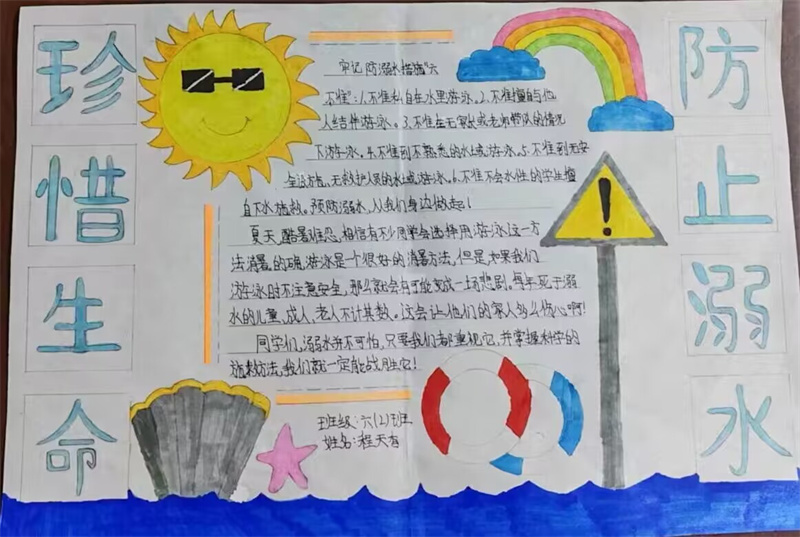 珍惜生命
防止溺水
牢记防溺水措施"六
不准":1.不准私自在水里游泳。2.不准擅自与他
人结伴游泳。3.不准在无家长或老师带队的情况
下游泳。4.不准到不熟悉的水域游泳。5.不准到无安
全设施、无救护人员的水域游泳。6.不准不会水性的学生擅
自下水施救。预防溺水,从我们身边做起!
夏天,酷暑难忍,相信有不少同学会选择用游泳这一方
法消暑。的确,游泳是个很好的消暑方法,但是,如果我们
游泳时不注意安全,那么就会有可能变成一场悲剧。每年死于溺
水的儿童、成人、老人不计其数。这会让他们的家人多么伤心啊!
同学们,溺水并不可怕,只要我们都重视它,并掌握科学的
施救方法,我们就一定能战胜它!
班级:六(2)班
姓名:程天有